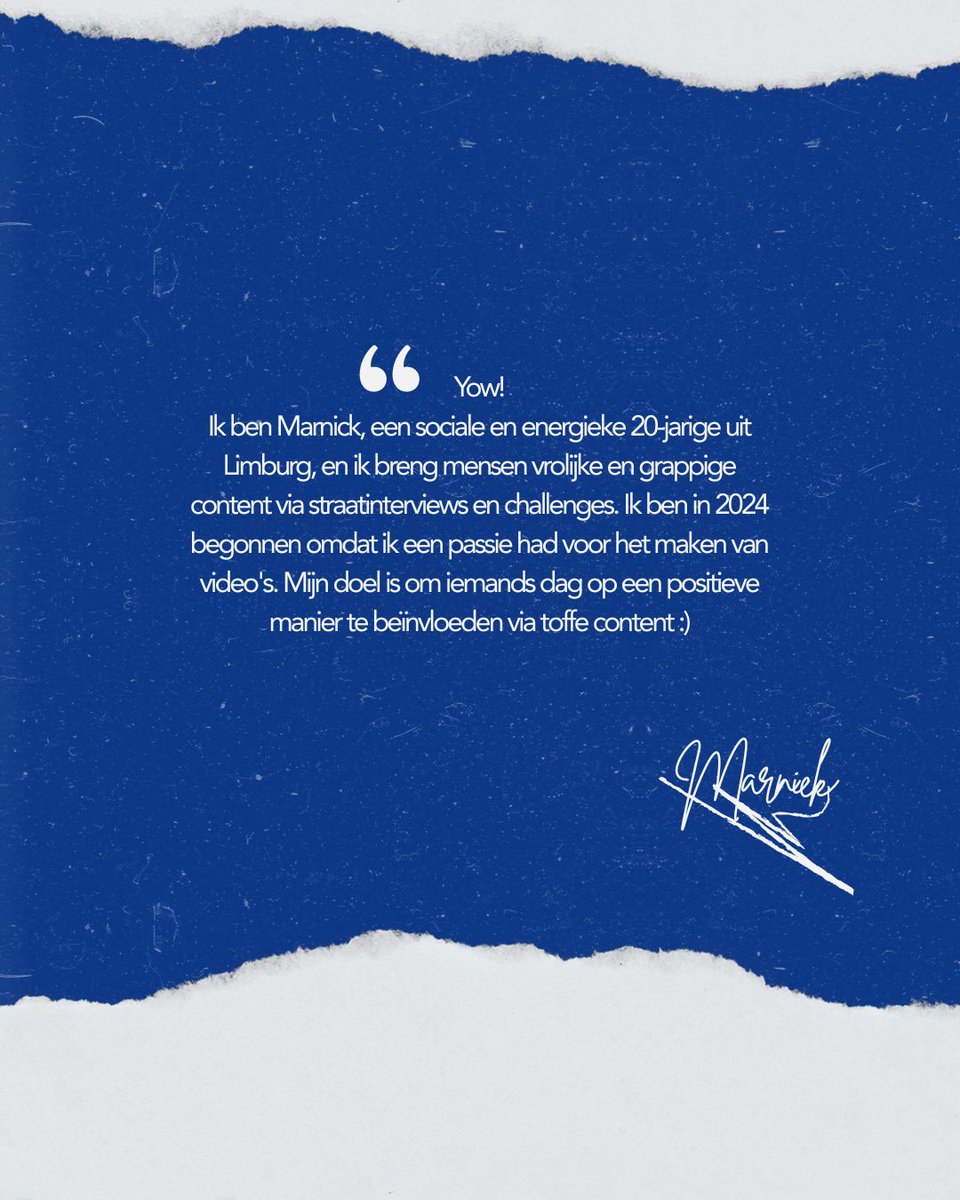 “ Yow!
Ik ben Marnick, een sociale en energieke 20-jarige uit
Limburg, en ik breng mensen vrolijke en grappige
content via straatinterviews en challenges. Ik ben in 2024
begonnen omdat ik een passie had voor het maken van
video's. Mijn doel is om iemands dag op een positieve
manier te beïnvloeden via toffe content :)
Marnick